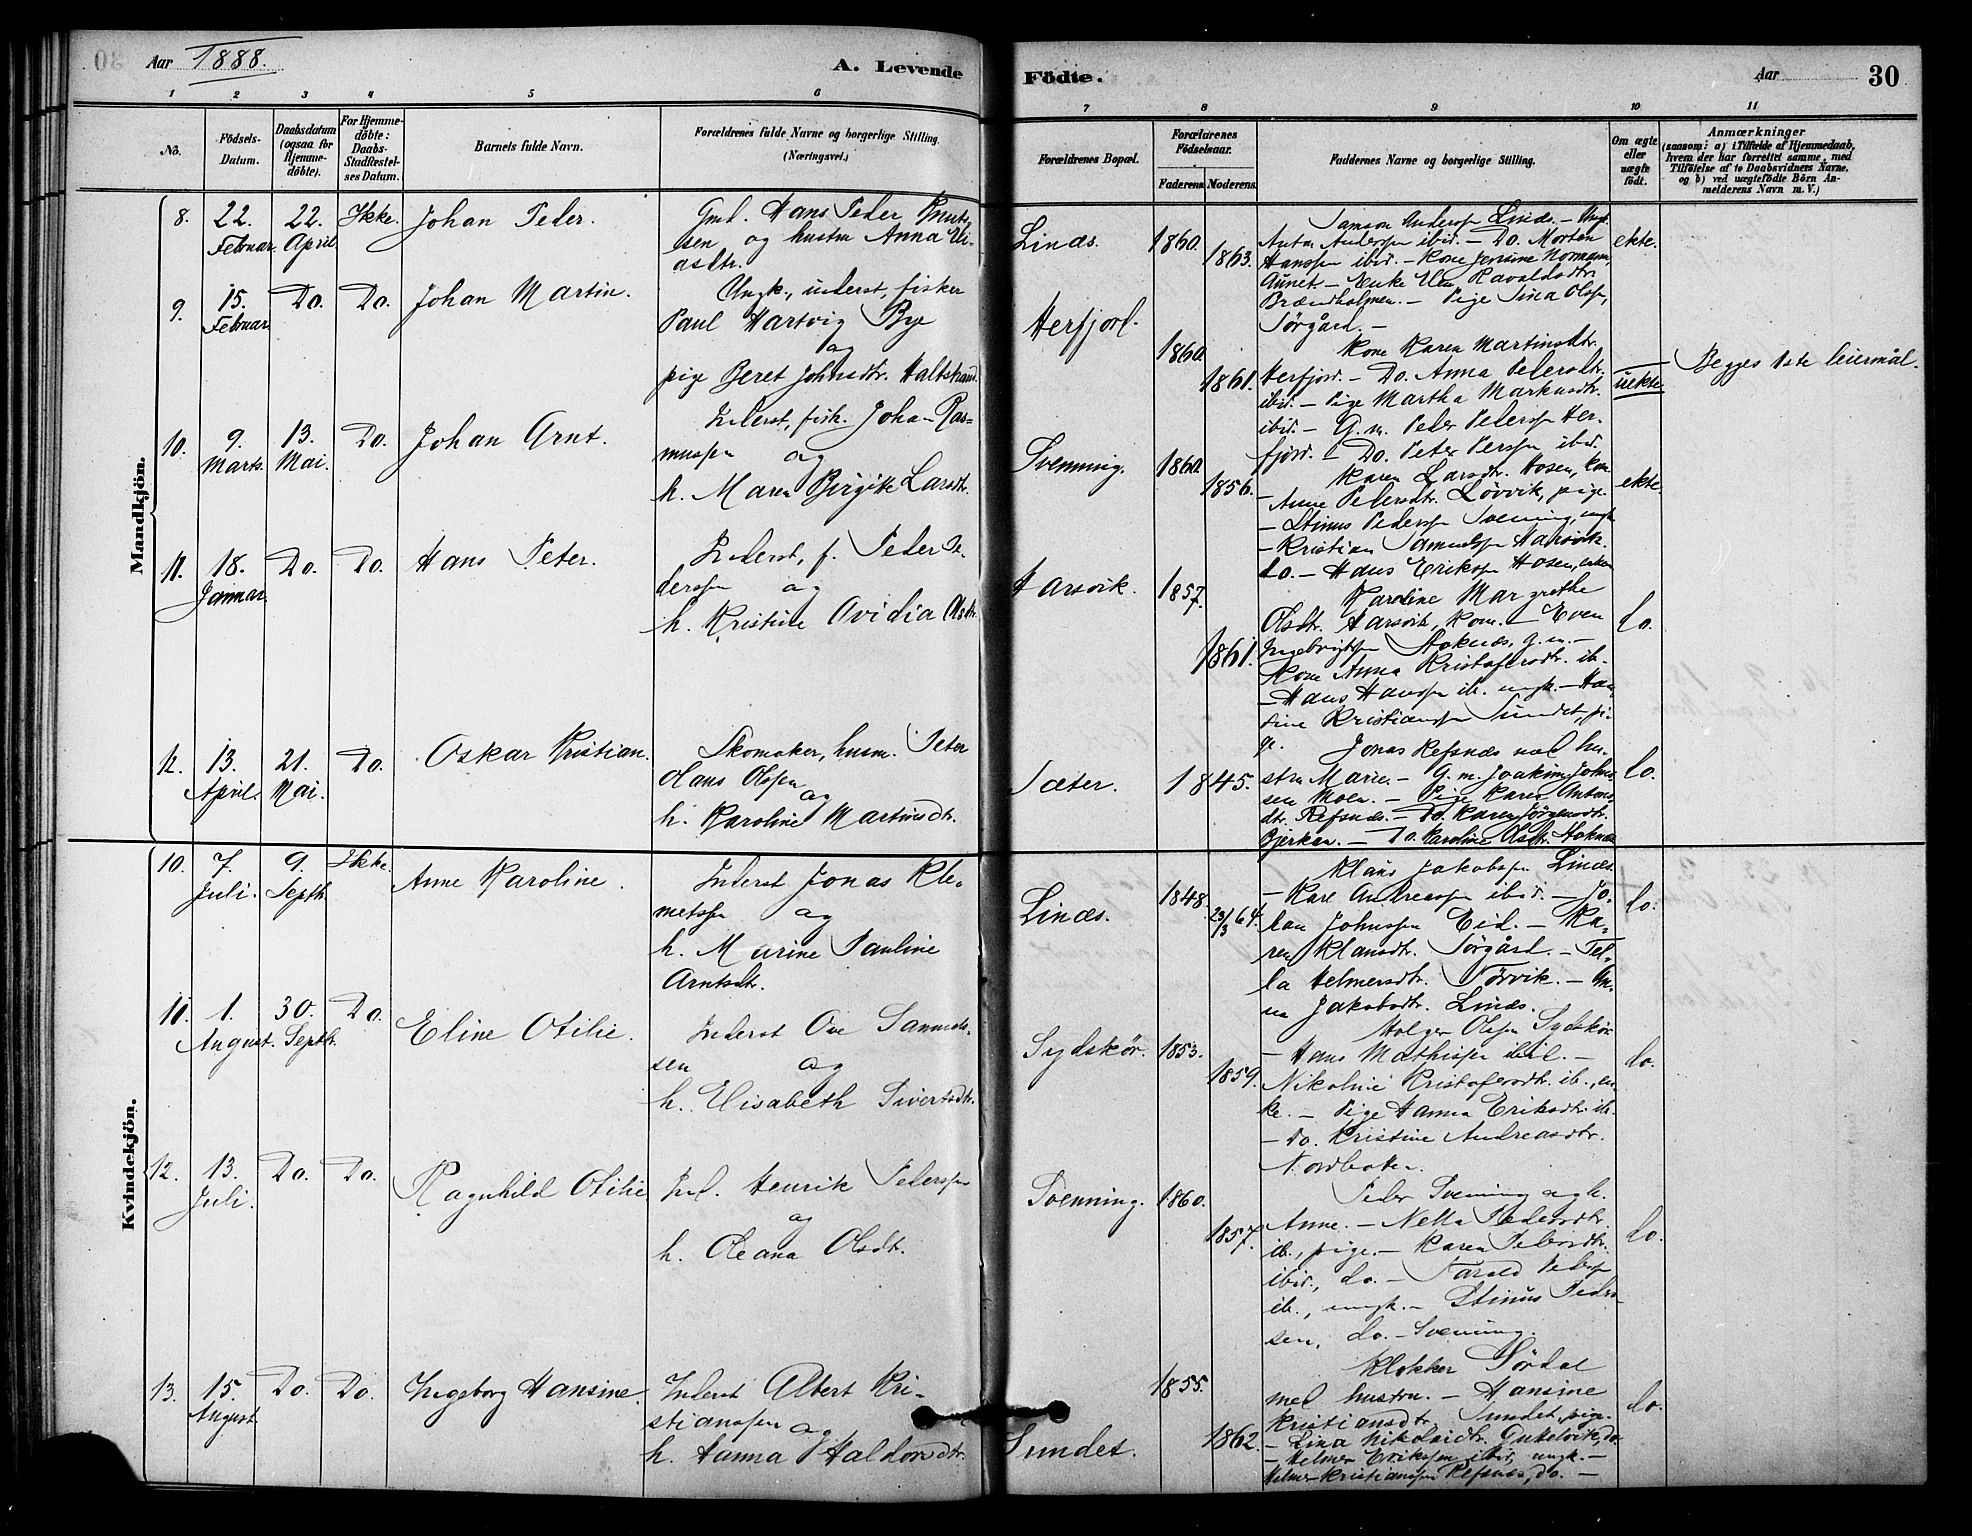 Aar 1888.
A. Levende
Födte.
Aar
30
1 2 3 4 5 6 7 8 9 10 11
No.
Födsels-
Datum.
Daabsdatum
(ogsaa for
Hjemme-
döbte).
For Hjemme-
döbte:
Daabs-
Stadfæstel-
ses Datum.
Barnets fulde Navn.
Forældrenes fulde Navne og borgerlige Stilling.
(Næringsvei.)
Forældrenes Bopæl.
Forældrenes
Födselsaar.
Faderens. Moderens.
Faddernes Navne og borgerlige Stilling.
Om ægte
eller
uægte
födt.
Anmærkninger
(saasom: a) i Tilfælde af Hjemmedaab,
hvem der har forrettet samme, med
Tilföielse af to Daabsvidners Navne,
og b) ved uægtefödte Börn An-
melderens Navn m. V.)
Mandkjön.
8.
22.
Februar.
22.
April
Ikke.
Johan Peder.
Gmd. Hans Peder Knut-
sen og hustru Anna Eli-
asdtr.
Linæs.
1860.
1863.
Samson Anderssen Linæs. – Ungk.
Anton Anderssen ibid. – Do. Morten
Hanssen ibid. – Kone Jensine Normann,
Aunet. – Enke Ravaldsdtr.
Brændholmen. – Pige Sina Olsen,
Sørgård. –
ekte.
9.
15.
Februar
Do.
Do.
Johan Martin.
Ungk., inderst, fisker
Paul Hartvig Bye
og
pige Beret Johnsdtr. Haltstrand.
Herfjord.
1860.
1861.
Kone Karen Martinsdtr.
Herfjord. – Do. Anna Pedersdtr.
ibid. – Pige Martha Markusdtr.
ibid. – G.m. Peder Pederssen Her-
fjord. – Do. Peter Perssen ibid.
uekte.
Begges 1ste leiermål.
10.
9.
Marts.
13.
Mai.
Do.
Johan Arnt.
Inderst, fisk. Johan Ras-
mussen og
h. Maren Birgitte Larsdtr.
Svenning.
1860.
1856.
Karen Larsdtr. Hosen, kone
– Anne Pedersdtr. Løvvik, pige.
– Stinus Pederssen Svenning, ungk.
– Kristian Samuelssen Harsvik.
do. – Hans Erikssen Hosen, enkem.
ekte.
11.
18.
Januar.
Do.
Do.
Hans Peter.
Inderst, f. Peder Pe-
derssen og
h. Kristine Ovidia Olsdtr.
Harsvik.
1857.
1861.
Karoline Margrethe
Olsdtr. Harsvik, kone. – Even
Ingebrigtssen Hoknæs, g.m. –
Kone Anna Kristofersdtr. ib.
– Hans Hanssen ib. ungk. – Han-
sine Kristianssen Sundet, pi-
ge.
do.
12.
13.
April.
21.
Mai.
Do.
Oskar Kristian.
Skomaker, husm. Peter
Hans Olssen
og
h. Karoline Martinsdtr.
Sæter.
1845.
Jonas Refsnæs med hu-
stru Marie. – G.m. Joakim Johns-
sen Moen. – Pige Karen Antons-
dtr. Refsnæs. – Do. Karen Jörgensdtr.
Bjerkan. – Do. Karoline Olsdtr. Hoknæs
do.
Kvindekjön.
10.
7.
Juli.
9.
Septb.
Ikke.
Anne Karoline.
Inderst Jonas Kle-
metssen og
h. Marine Pauline
Arntsdtr.
Linæs.
1848.
23/3 64.
Klaus Jakobssen Linæs.
– Karl Andreassen ibid. – Jo-
han Johnssen Eid. – Ka-
ren Klausdtr. Sørgård. – Pel-
la Helmersdtr. Tørvik. – An-
na Jakobsdtr. Linæs.
do.
11.
1.
August.
30.
Septb.
Do.
Eline Otilie.
Inderst Ove Samuels-
sen og
h. Elisabeth Sivertsdtr.
Sydskör.
1853.
1859.
Holger Olssen Sydskör
– Hans Mathissen ibid. –
Nikoline Kristofersdtr. ib., en-
ke. – Pige Hanna Eriksdtr. ib.
– Do. Kristine Andreasdtr.
Nordbotten.
do.
12.
13.
Juli.
Do.
Do.
Ragnhild Otilie
Ind. Henrik Pederssen
og
h. Oleana Olsdt.
Svenning.
1860.
1857.
Peder Svenning og h.
Anne. – Netta Pedersdtr.
ib., pige. – Karen Pedersdtr.
ibid., do. – Harald Pederssen
ib., ungk. – Stinus Peders-
sen, do. – Svenning.
do.
13.
15.
August.
Do.
Do.
Ingeborg Hansine.
Inderst Albert Kri-
stianssen og
h. Hanna Haldorsdtr.
Sundet.
1855.
1862.
Klokker Sördal
med hustru. – Hansine
Kristiansdtr. Sundet, pige.
– Lina Nikolaidtr. Dukelvik, do.
– Helmer Erikssen ibid., ungk. –
Helmer Kristianssen Refsnæs, do. –
do.